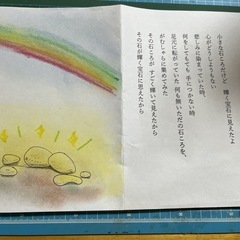 小さな石ころだけど 輝く宝石に見えた
心がどうしようもない
悲しみに染まっていた時、
何をしてもても 手につかない時
足元に転がっていた 何も無いただの石ころを、
がむしゃらに集めてみた
その石ころが すごく輝いて見えたから
その石が輝く宝石に思えたから